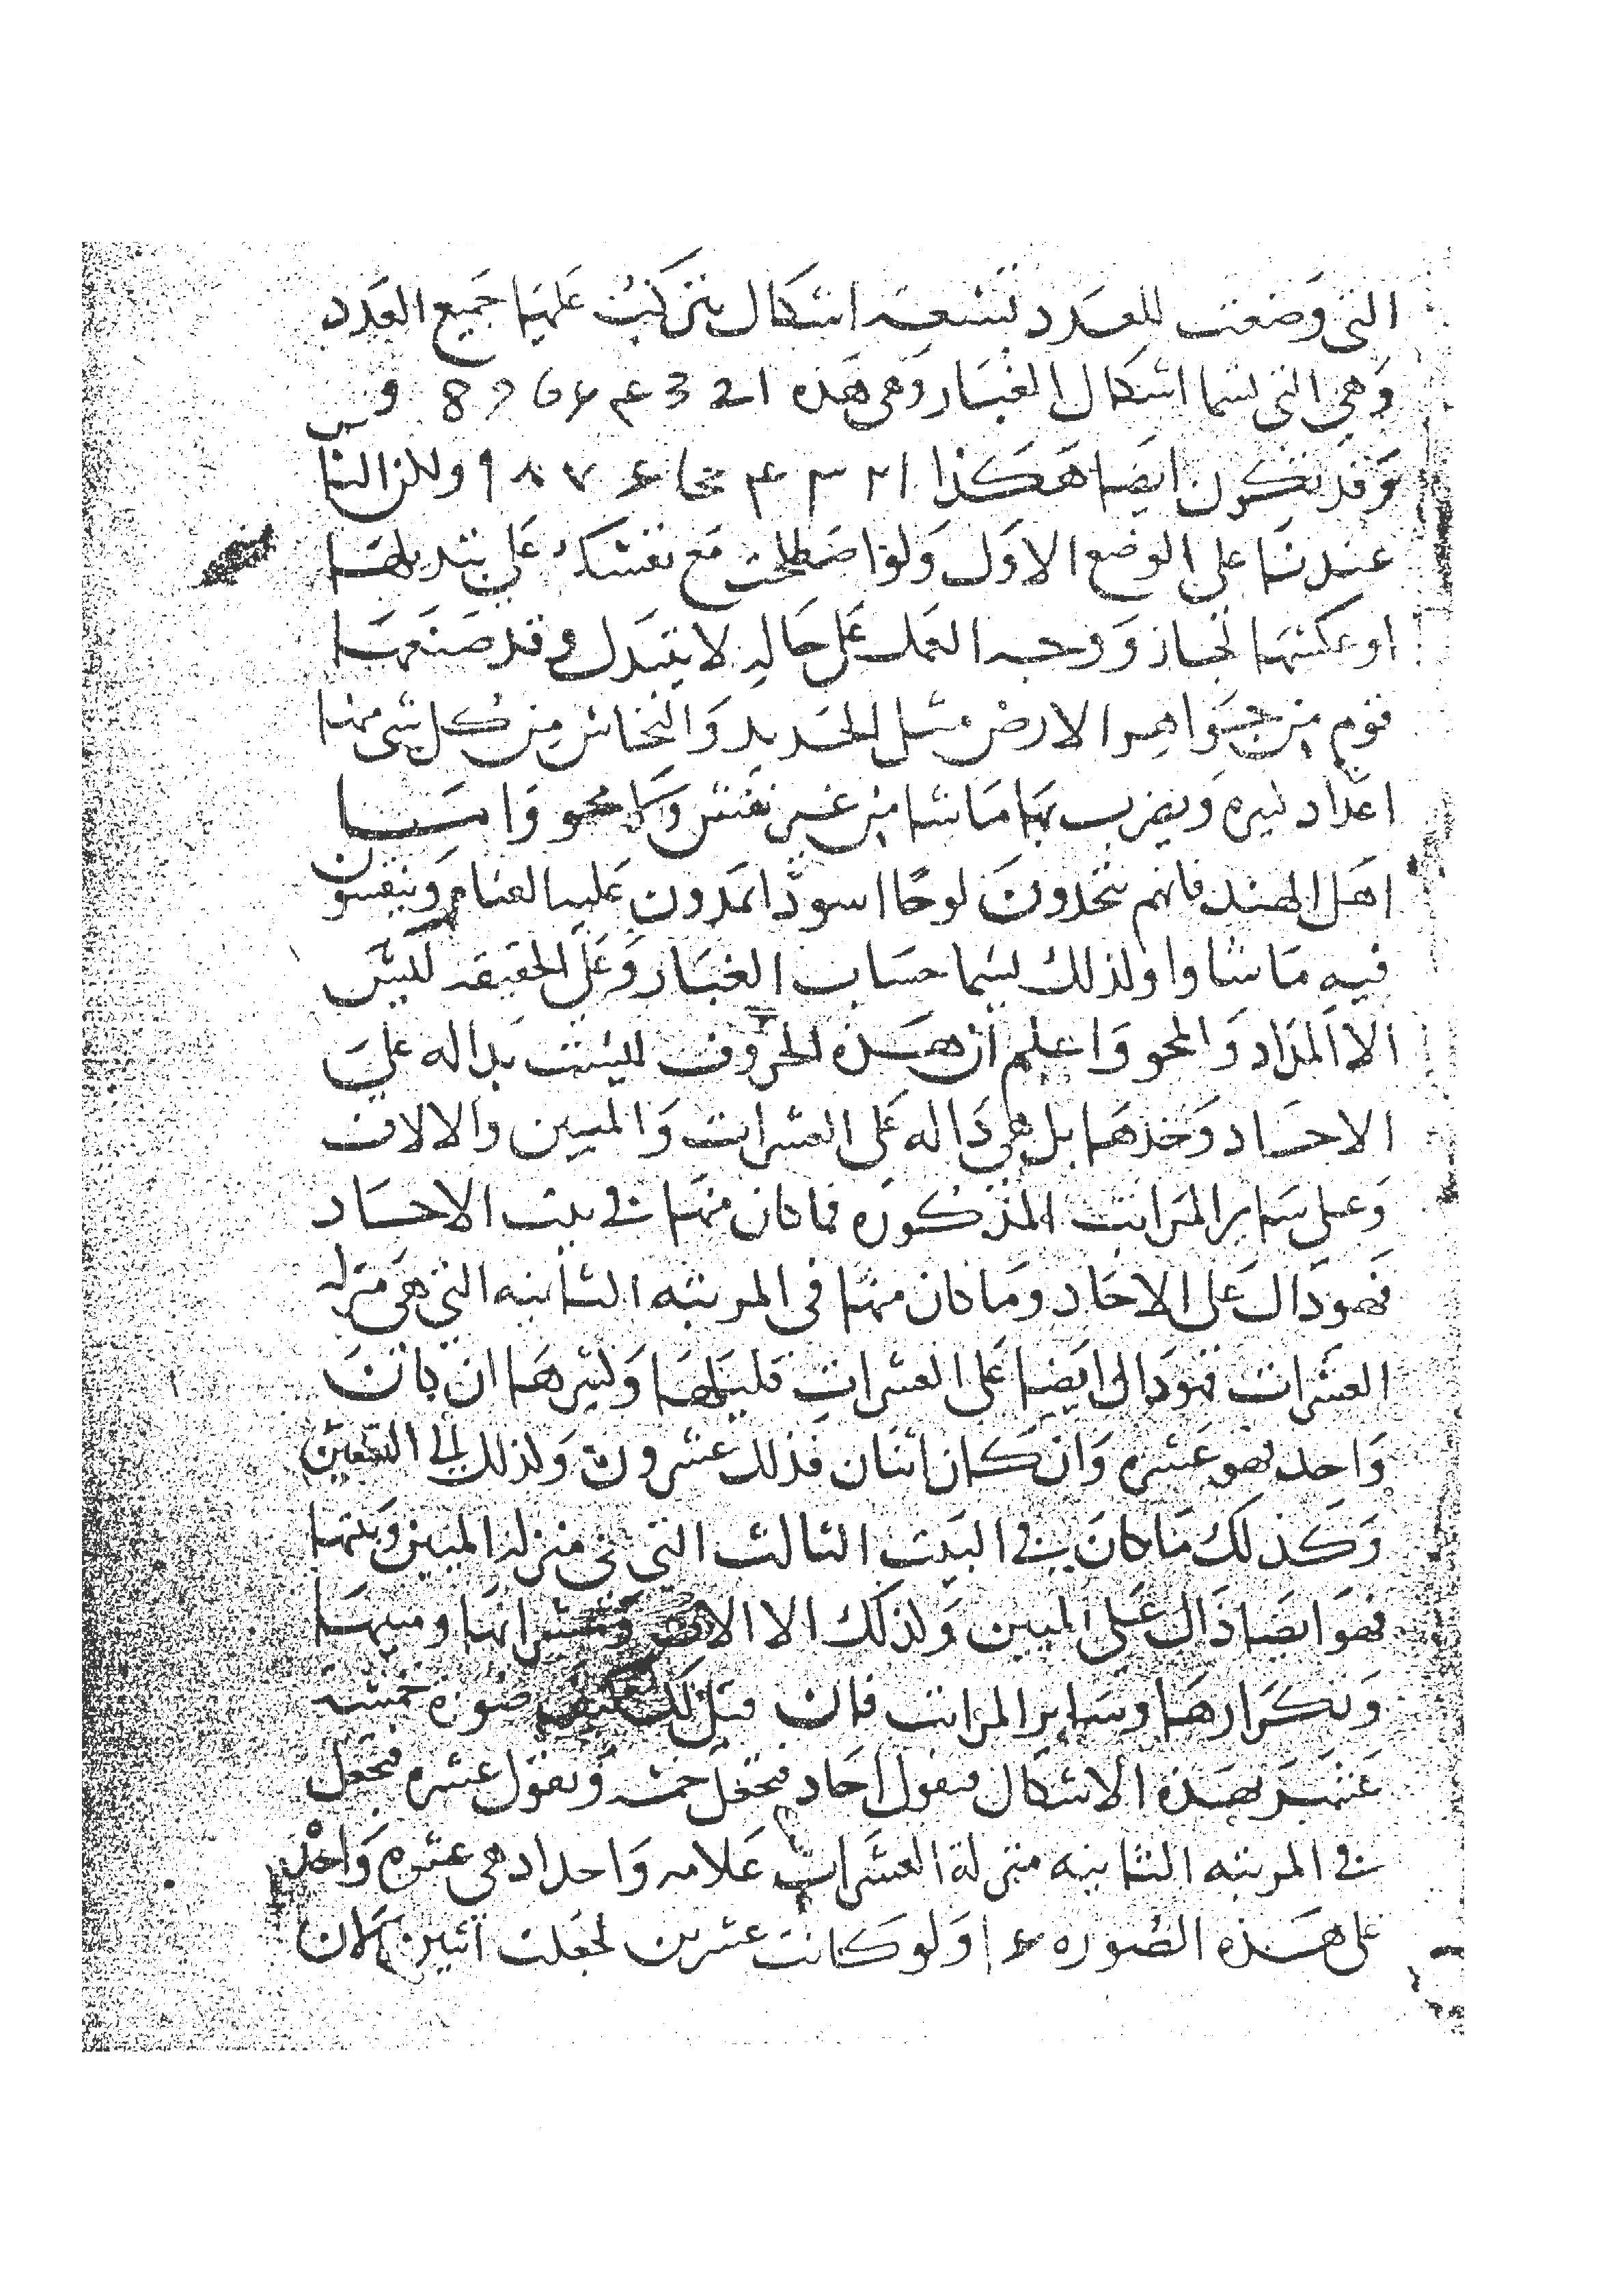 التي وضعت للعدد تسعة اشكال يتركب عليها جميع العدد
وهي التي تسما اشكال الغبار وهي هذه
وقد تكون ايضا هكذا ولكن الناس
عندنا على الوضع الاول ولو اصطلحت مع نفسك على تبديلها
او عكسها لجاز ووجه العمل على حاله لا يتبدل وقد صنعها
قوم من جواهر الارض مثل الحديد والنحاس من كل شي منها
اعداد كثيره ويضرب بها ما شا من غير نقش ولا محو واما
اهل الهند فانهم يتخذون لوحا اسودا يمدون عليه الغبار وينقشون
فيه ما شاوا ولذلك يسما حساب الغبار وعلى الحقيقه ليس
الا المداد والمحو واعلم ان هذه الحروف ليست بداله على
الاحاد وحدها بل هي داله على العشرات والميين والالاف
وعلى ساير المراتب المذكوره فما كان منها في بيت الاحاد
فهو دال على الاحاد وما كان منها في المرتبه الثانيه التي هي منزله
العشرات فهو دال ايضا على العشرات قليلها وكثيرها ان كان
واحد فهو عشره وان كان اثنان فذلك عشرون وكذلك الى التسعين
وكذلك ما كان في البيت الثالث التي هي منزله الميين
فهو ايضا دال على الميين وكذلك الالاف وعشراتها وميها
وتكرارها وساير المراتب فان قيل لك كيف صوره خمسه
عشر بهذه الاشكال فتقول احاد فتجعل خمسه وتقول عشره فتجعل
في المرتبه الثانيه منزلة العشرات علامه واحد اذ هي عشره واحده
على هذه الصوره ولو كانت عشرين لجعلت اثنين لان